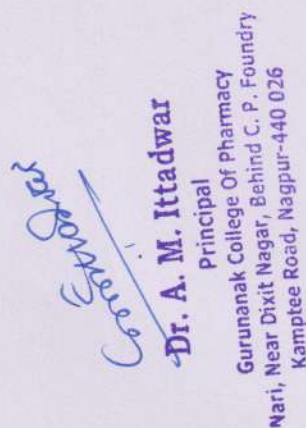 Dr. A. M. Ittadwar
Principal
Gurunanak College Of Pharmacy
Nari, Near Dixit Nagar, Behind C. P. Foundry
Kamptee Road, Nagpur-440 026